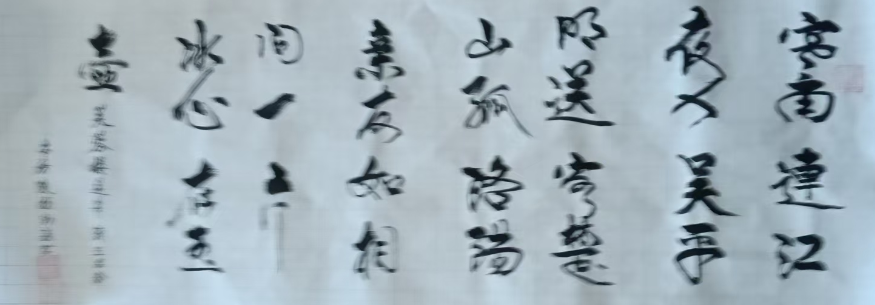 寒雨連江
夜入吴平
明送客楚
山孤洛陽
亲友如相
问一片
冰心在玉
壶 芙蓉樓送辛